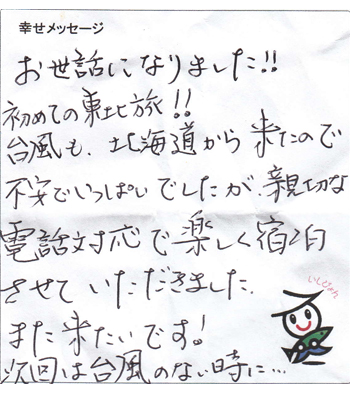 幸せメッセージ
お世話になりました!!
初めての東北旅!!
台風も、北海道から来たので
不安でいっぱいでしたが、親切な
電話対応で楽しく宿泊
させていただきました。
また来たいです!
次回は台風のない時に…